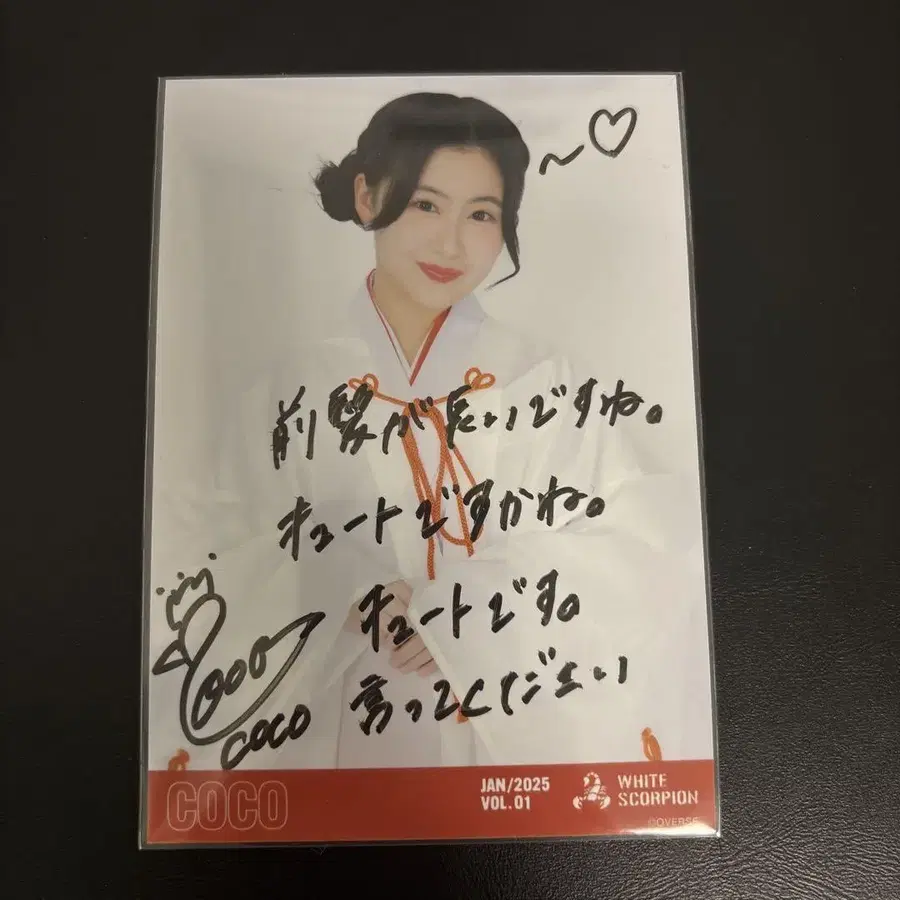 前髪が長いですね。
キュートですかね。
キュートです。
言ってください
COCO
COCO
JAN/2025
VOL.01
WHITE
SCORPION
©OVERSE